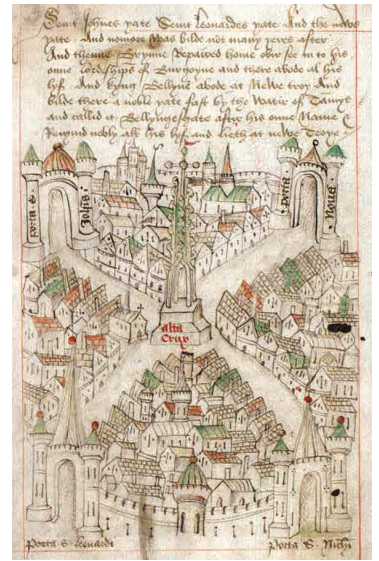 Seint Johnes yate Seint Leonardes yate And the newe
yate . And nomore was bilde not many yeres after
And thenne Brynne Repaired home ovir see in to his
owne lordships of Burgoyne and there abode al his
lyf . And kyng Bellyne abode at Newe troy And
bilde there a noble yate fast by the Watir of Tamys
and callid it Bellyngesgate after his owne Name &
Reignid nobly all his lyf and lieth at newe Troye .
porta S
Johis .
Porta
Nova
alta
Crux
Porta S . Leonardi
Porta S . Nichi